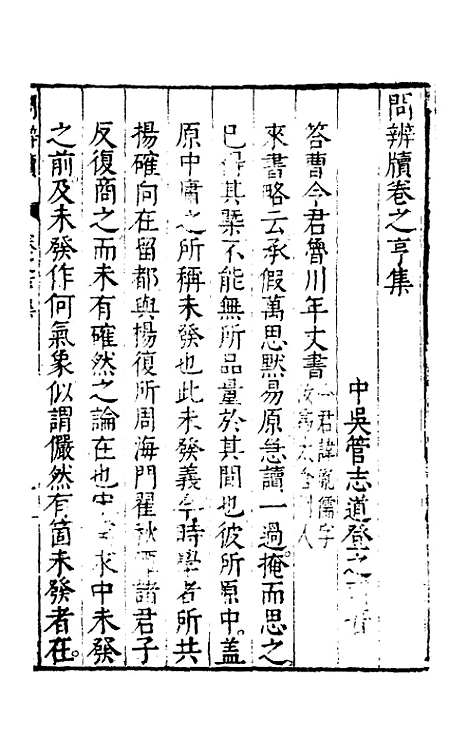 問辨牘卷之亨集
中吳管志道登之
答曹令君魯川年丈書
君諱胤儒字
人
來書略云承假萬思默易原急讀一過掩而思之
已得其槩不能無所品量於其間也彼所原中蓋
原中庸之所稱未發也此未發義今時學者所共
揚確向在留都與楊復所周海門翟秋潭諸君子
反復商之而未有確然之論在也中求中未發
之前及未發作何氣象似謂儼然有箇未發者在